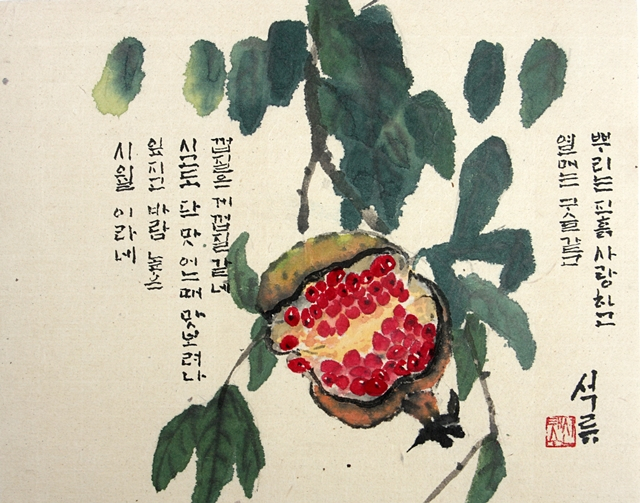 뿌리는 진흙 사랑하고
열매는 구슬 같고
껍질은 게 껍질 같네
시고도 단 맛 어느때 맛보려나
잎지고 바람 높은
시월 이라네
석류